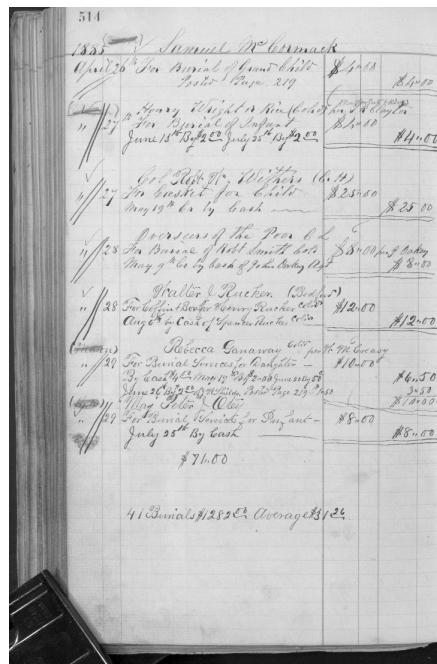 514
1885 Samuel McCormack
April 26th For Burial of Grand Child $4.00
Posted Page 219 $4.00
Henry Wright or Rice (Cold)
" 27 For Burial of Infant $4.00
June 15th By $2.00 July 25th By $2.00 $4.00
Col Robt W. Withers
" 27 For Casket for Child $25.00
May 19th Cr by Cash $25 00
Overseers of the Poor C L
" 28 For Burial of Robt Smith Cold $8.00
May 9th Cr by Cash of John Oakey Agt $8.00
Walter J Rucker (Bedford)
" 28 For Coffin & Box for Henry Rucker Cold $12.00
Aug 6th by Cash of Spencer Rucker Cold $12.00
Rebecca Ganaway Cold per W. McCreary
" 29 For Burial Services for Daughter $10.00
By Cash $4.00 May 19th By $2.00 June $6.50
June 26 By Posted Page 219 3.50
$10.00
Peter
" 29 For Burial Services for Infant $8.00
July 25th By Cash $8.00
$71.00
41 Burials $1282.00 Average $31.26